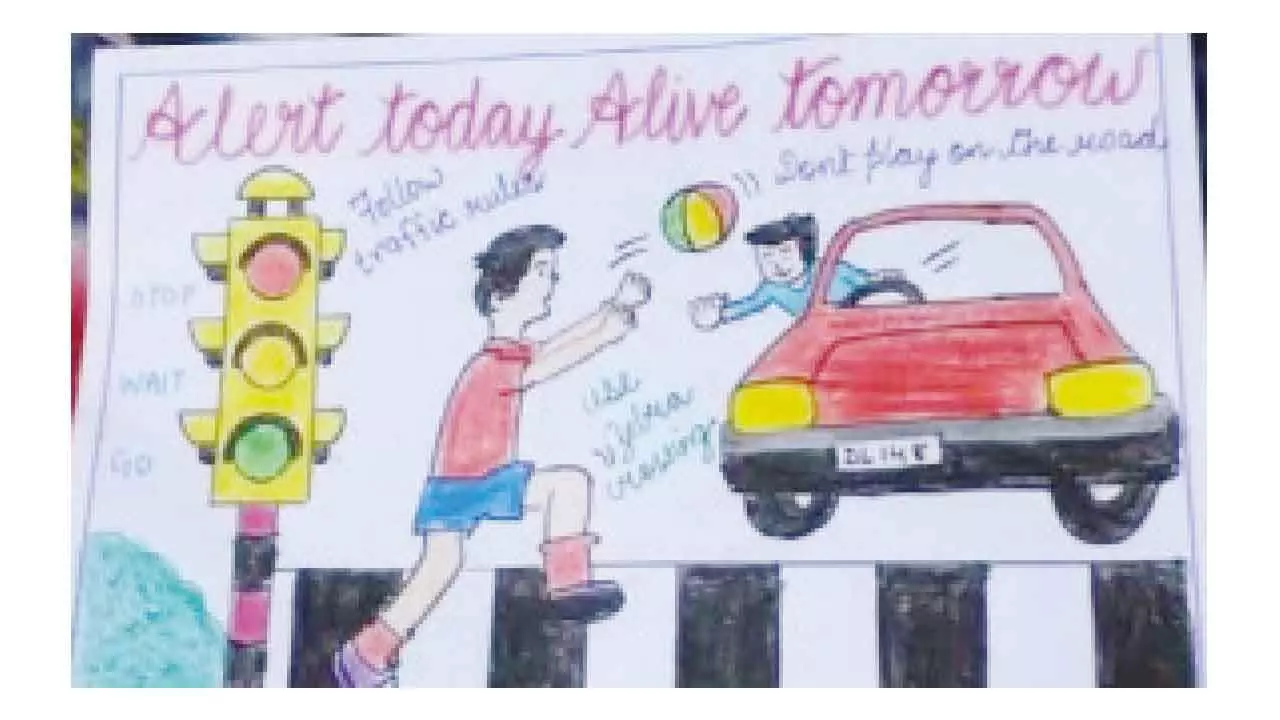 Alert today Alive tomorrow
Follow
traffic rules
Dont play on the road
STOP
WAIT
GO
use
zebra
crossing